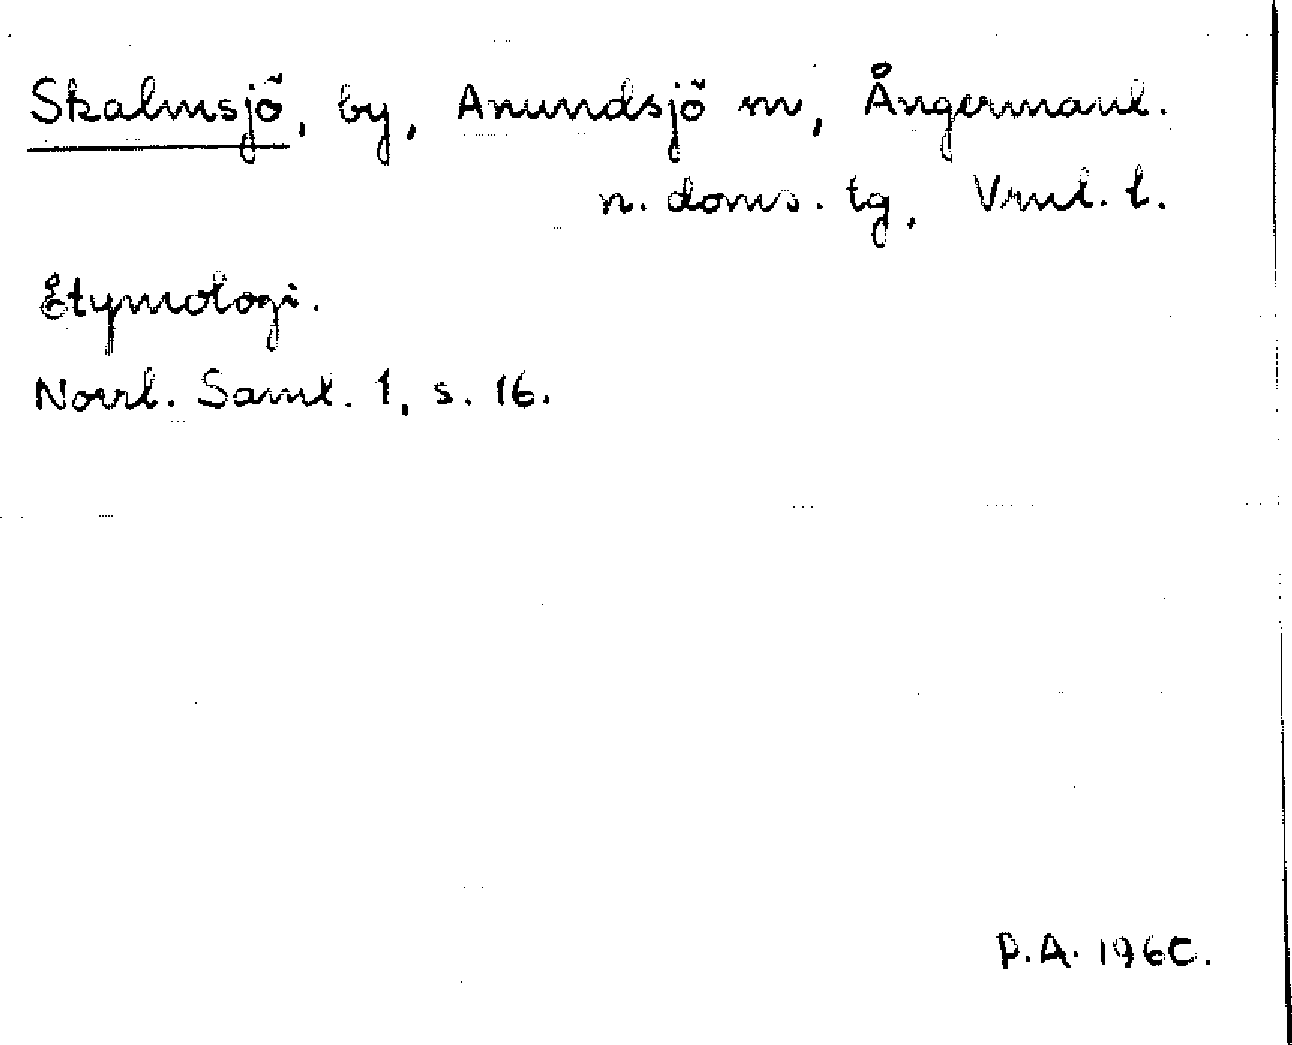 Skalmsjö, by, Anundsjö sn, Ångermanl.
n. doms. tg, Vrnl. l.
Etymologi.
Norrl. Saml. 1, s. 16.
P.A. 1960.